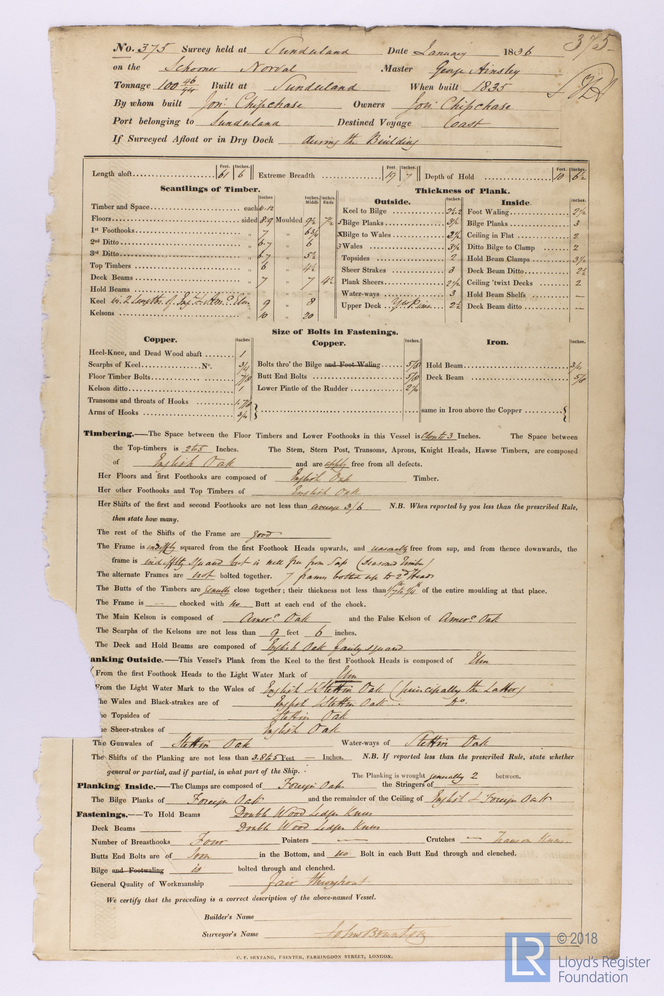 375
No. 375 Survey held at Sunderland Date January 1836
on the Schooner Norval Master George Ainsley
Tonnage 100 46/94 Built at Sunderland When built 1835
By whom built Jon. Chipchase Owners Jon. Chipchase
Port belonging to Sunderland Destined Voyage Coast
If Surveyed Afloat or in Dry Dock during the Building
Feet. Inches. Feet. Inches. Feet. Inches.
Length aloft 61 6 Extreme Breadth 17 7 Depth of Hold 10 6½
Scantlings of Timber.
Timber and Space each
Floors sided 8.9 Moulded 9½ 7½
1st Foothooks 7 " 6¾
2nd Ditto 6.7 " 6
3rd Ditto 6.7 " 5½
Top Timbers 6 " 4½
Deck Beams 7 " 7 4½
Hold Beams
Keel in 2 lengths of Eng. & Amer. Elm 9 " 8
Kelsons 10 " 20
Thickness of Plank.
Outside.
Keel to Bilge 2½
Bilge Planks 3½
Bilge to Wales 2½
Wales 3½
Topsides 2
Sheer Strakes 3
Plank Sheers 2½
Water-ways 3
Upper Deck Yel. Pine 2½
Inside.
Foot Waling 2½
Bilge Planks 3
Ceiling in Flat 2
Ditto Bilge to Clamp 2
Hold Beam Clamps 3½
Deck Beam Ditto 2½
Ceiling 'twixt Decks 2
Hold Beam Shelfs —
Deck Beam ditto —
Size of Bolts in Fastenings.
Copper.
Heel-Knee, and Dead Wood abaft 1
Scarphs of Keel No. 3/4
Floor Timber Bolts 7/8
Kelson ditto 1
Transoms and throats of Hooks 1.7/8
Arms of Hooks 3/4
Copper.
Bolts thro' the Bilge and Foot Waling 5/8
Butt End Bolts 5/8
Lower Pintle of the Rudder 2¼
Iron.
Hold Beam 3/4
Deck Beam 5/8
same in Iron above the Copper
Timbering.—The Space between the Floor Timbers and Lower Foothooks in this Vessel is about 3 Inches. The Space between
the Top-timbers is 2 to 5 Inches. The Stem, Stern Post, Transoms, Aprons, Knight Heads, Hawse Timbers, are composed
of English Oak and are apply free from all defects.
Her Floors and first Foothooks are composed of English Oak Timber.
Her other Foothooks and Top Timbers of English Oak
Her Shifts of the first and second Foothooks are not less than average 3/6 N.B. When reported by you less than the prescribed Rule,
then state how many.
The rest of the Shifts of the Frame are good
The Frame is indiffly squared from the first Foothook Heads upwards, and unusually free from sap, and from thence downwards, the
frame is indiffly squared but is well free from Sap (Seasoned Timber)
The alternate Frames are not bolted together. 7 frames bolted up to 2d Heads
The Butts of the Timbers are generally close together; their thickness not less than of the entire moulding at that place.
The Frame is — chocked with no Butt at each end of the chock.
The Main Kelson is composed of Amerc. Oak and the False Kelson of Amerc. Oak
The Scarphs of the Kelsons are not less than 9 feet 6 inches.
The Deck and Hold Beams are composed of English Oak fairly squared
anking Outside.—This Vessel's Plank from the Keel to the first Foothook Heads is composed of Elm
From the first Foothook Heads to the Light Water Mark of Elm
From the Light Water Mark to the Wales of English & Stettin Oak (principally the Latter)
he Wales and Black-strakes are of English & Stettin Oak Do.
he Topsides of Stettin Oak
he Sheer-strakes of English Oak
The Gunwales of Stettin Oak Water-ways of Stettin Oak
The Shifts of the Planking are not less than 3.8 to 5 Feet — Inches. N.B. If reported less than the prescribed Rule, state whether
general or partial, and if partial, in what part of the Ship.
The Planking is wrought generally 2 between.
Planking Inside.—The Clamps are composed of Foreign Oak the Stringers of —
The Bilge Planks of Foreign Oak and the remainder of the Ceiling of English & Foreign Oak
Fastenings.—To Hold Beams Double Wood Ledge Knees
Deck Beams Double Wood Ledge Knees
Number of Breasthooks Four Pointers — Crutches —
Butts End Bolts are of Iron in the Bottom, and no Bolt in each Butt End through and clenched.
Bilge and Footwaling is bolted through and clenched.
General Quality of Workmanship fair throughout
We certify that the preceding is a correct description of the above-named Vessel.
Builder's Name
Surveyor's Name John Brunton
C. F. SEYFANG, PRINTER, FARRINGDON STREET, LONDON.
LR © 2018
Lloyd's Register
Foundation